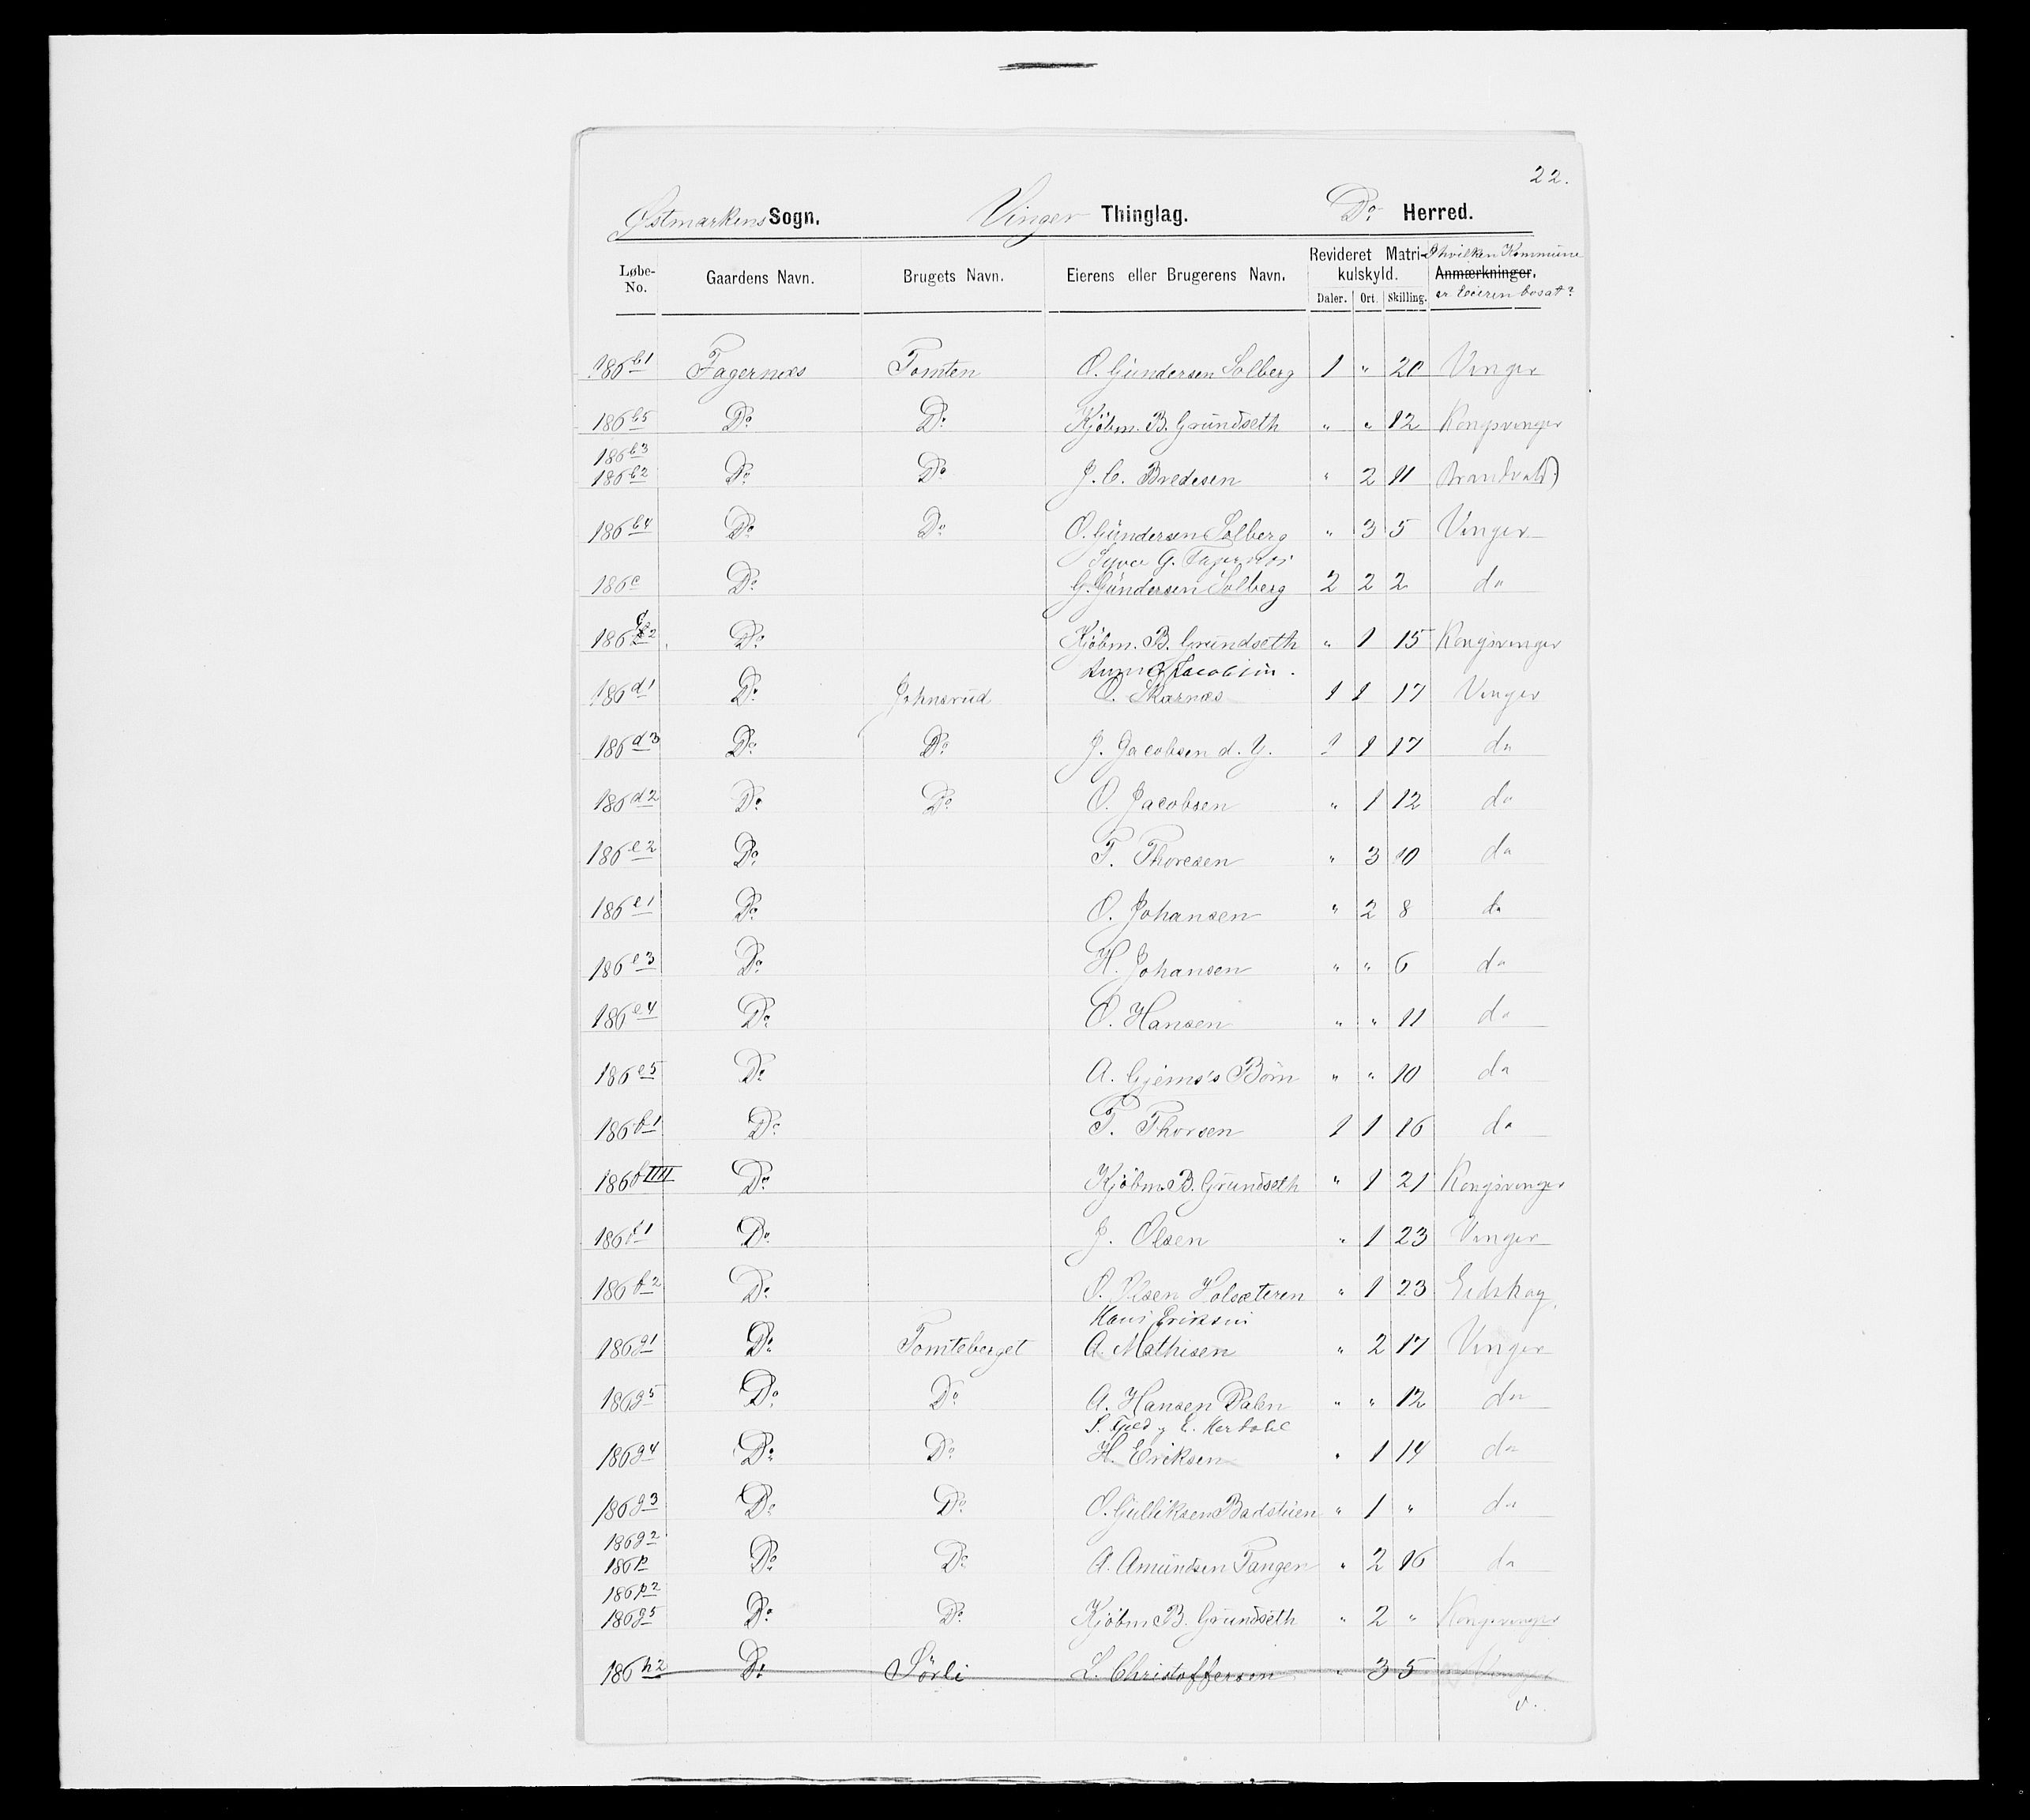 22.
Østmarkens Sogn. Vinger Thinglag. Do. Herred.
Løbe-No. Gaardens Navn. Brugets Navn. Eierens eller Brugerens Navn. Revideret Matrikulskyld. Daler. Ort. Skilling. Anmærkninger. I hvilken Kommune er Eieren bosat?
186 b1 Fagernæs Tomten O. Gundersen Solberg 1 " 20 Vinger
186 b5 Do. Do. Kjøbm. B. Grundseth " " 12 Kongsvinger
186 b3
186 b2 Do. Do. J. C. Bredesen " 2 11 Brandvold
186 b4 Do. Do. O. Gundersen Solberg " 3 5 Vinger
Syver G. Fagernæs
186 c Do. G. Gundersen Solberg 2 2 2 do
186 c2 Do. Kjøbm. B. Grundseth " 1 15 Kongsvinger
Jacobsen.
186 d1 Do. Johnsrud O. Skarnæs 1 1 17 Vinger
186 d3 Do. Do. J. Jacobsen d. Y. 1 1 17 do
186 d2 Do. Do. O. Jacobsen " 1 12 do
186 e2 Do. T. Thoresen " 3 10 do
186 e1 Do. O. Johansen " 2 8 do
186 e3 Do. H. Johansen " " 6 do
186 e4 Do. O. Hansen " " 11 do
186 e5 Do. A. Gjems's Børn " " 10 do
186 f1 Do. T. Thorsen 1 1 16 do
186 f Do. Kjøbm. B. Grundseth " 1 21 Kongsvinger
186 f1 Do. J. Olsen " 1 23 Vinger
186 f2 Do. O. Olsen Holsæteren " 1 23 Eidskog
Hans Eriksen
186 g1 Do. Tomteberget A. Mathisen " 2 17 Vinger
186 g5 Do. Do. A. Hansen Dalen " " 12 do
186 g4 Do. Do. H. Eriksen " 1 14 do
186 g3 Do. Do. O. Gulliksen Badstuen " 1 " do
186 g2
186 p Do. Do. A. Amundsen Tangen " 2 16 do
186 p2
186 g5 Do. Do. Kjøbm. B. Grundseth " 2 " Kongsvinger
186 h2 Do. Sørli L. Christoffersen " 3 5 Vinger
v.